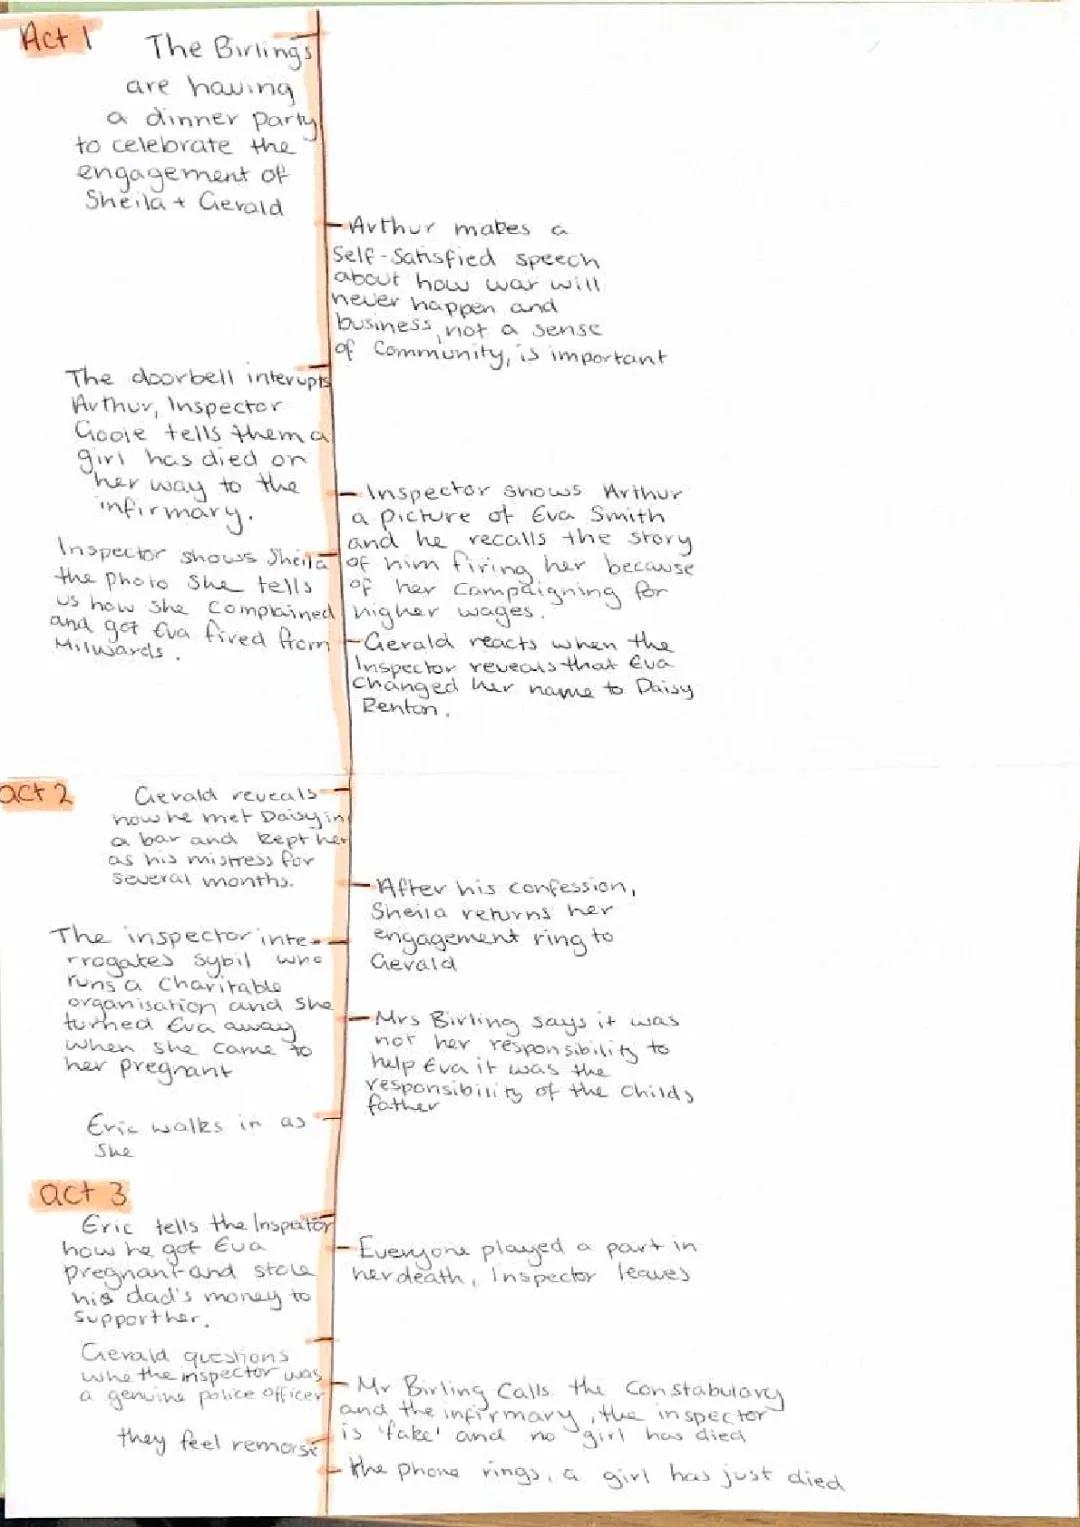 Act 1
The Birlings
are having
a dinner party
to celebrate the
engagement of
Sheila + Gerald
Arthur makes a
Self-Satisfied speech
about how war will
never happen and
business, not a sense
of Community, is important
The doorbell interupts
Arthur, Inspector
Goole tells them a
girl has died on
her way to the
infirmary.
Inspector shows Arthur
a picture of Eva Smith
and he recalls the story
of him firing her because
of her Campaigning for
higher wages.
Inspector shows Sheila
the photo She tells
us how she complained
and got Eva fired from
Milwards.
Gerald reacts when the
Inspector reveals that Eva
changed her name to Daisy
Renton.
act 2
Gerald reveals
how he met Daisy in
a bar and kept her
as his mistress for
several months.
After his confession,
Sheila returns her
engagement ring to
Gerald
The inspector inte-
rrogates Sybil who
runs a Charitable
organisation and she
turned Eva away
when she came to
her pregnant
Mrs Birling says it was
not her responsibility to
help Eva it was the
responsibility of the childs
father
Eric walks in as
she
act 3
Eric tells the Inspector
how he got Eva
pregnant and stole
his dad's money to
support her.
Everyone played a part in
her death, Inspector leaves
Gerald questions
whe the inspector was
a genuine police officer
Mr Birling Calls the Constabulary
and the infirmary, the inspector
is 'fake' and no girl has died
they feel remorse
the phone rings, a girl has just died